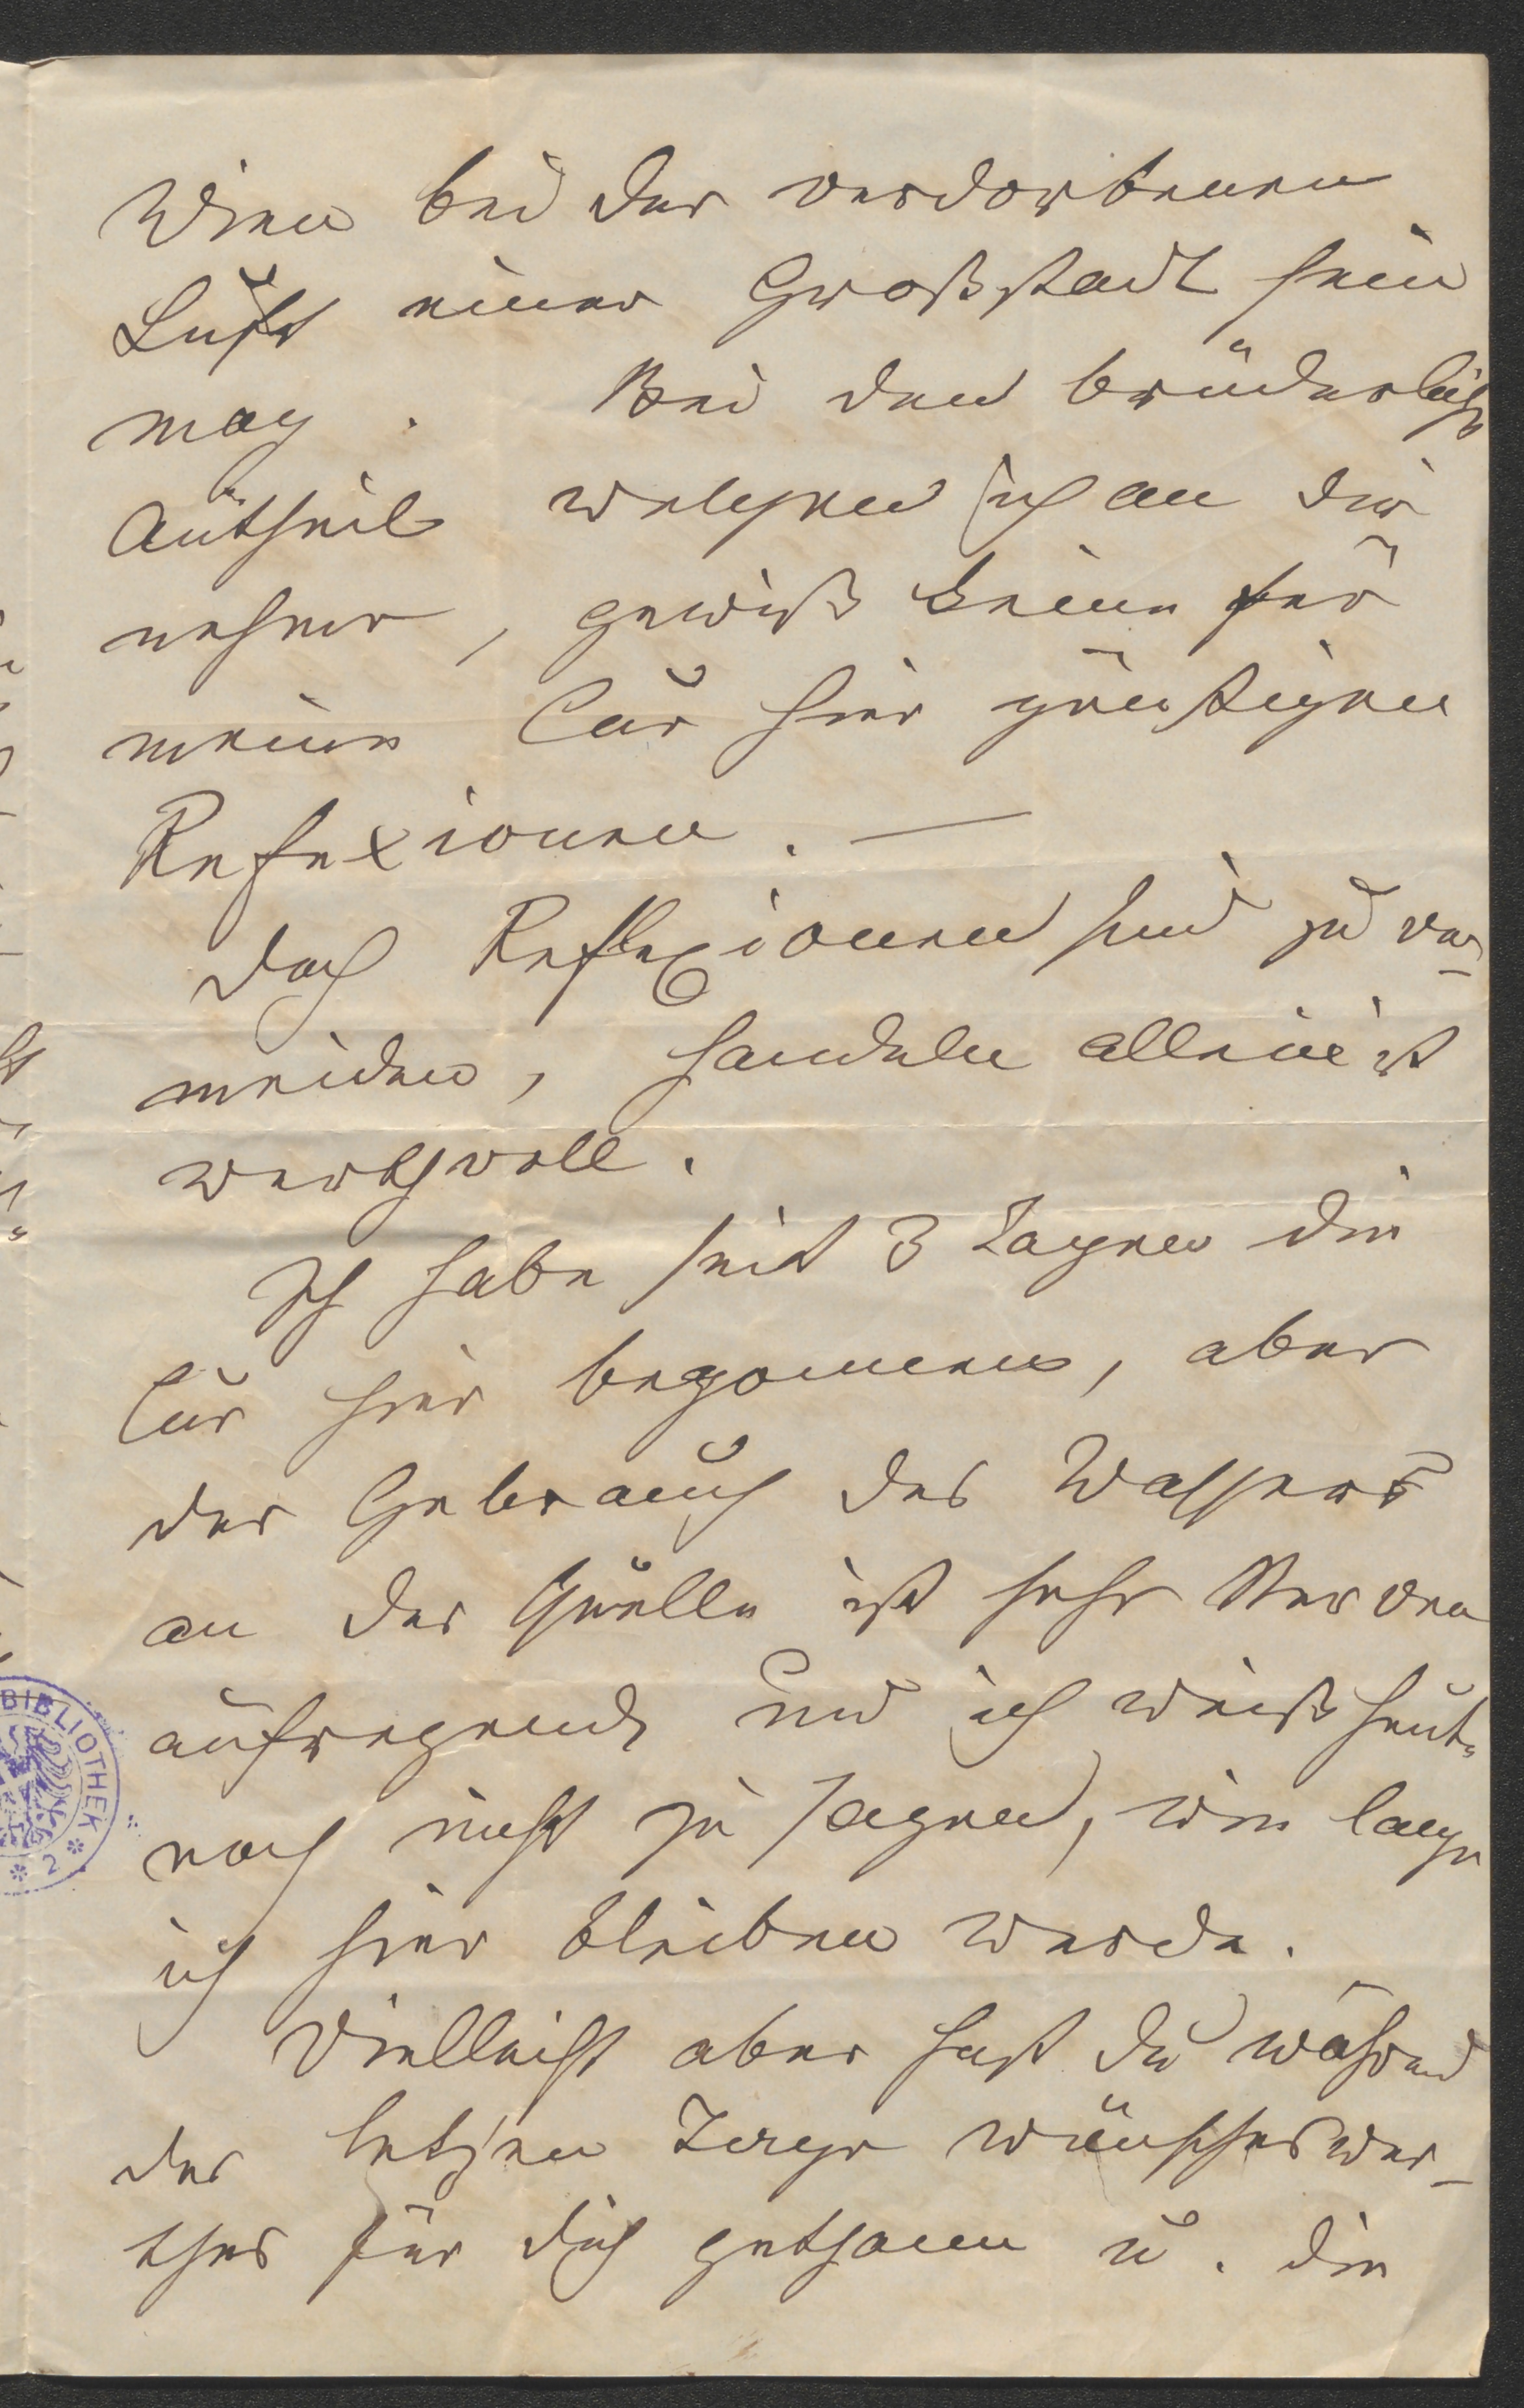 Wien bei der verdorbenen
Luft einer Großstadt sein
mag. Bei dem brüderlich
Antheil welchen ich an dir
nehme, gewiß keine für
meine Cur hier günstigen
Refexionen. —
Doch Reflexionen sind zu ver-
meiden, handeln allein ist
werthvoll.
Ich habe seit 3 Tagen die
Cur hier begonnen, aber
der Gebrauch des Wassers
an der Quelle ist sehr Nerven
aufregend und ich weiß heute
noch nicht zu sagen, wie lange
ich hier bleiben werde.
Vielleicht aber hast du während
der letzten Tage wünschenswer-
thes für dich gethan u. die
BIBLIOTHEK * 2 *